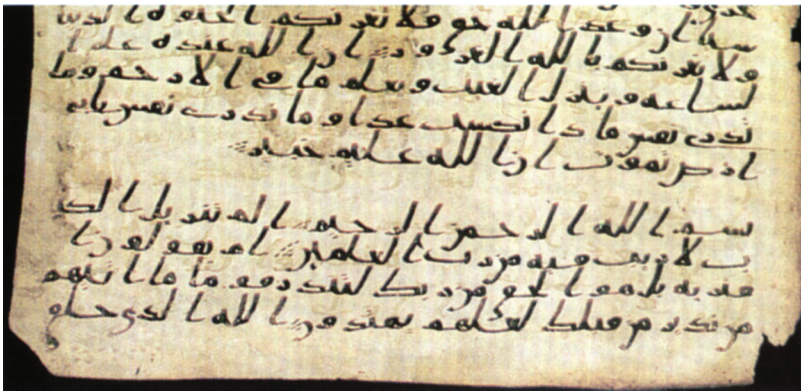 شيا ان وعد الله حق فلا تغرنكم الحيوة الدنيا
ولا يغرنكم بالله الغرور ان الله عنده علم ا
لساعة وينزل الغيث ويعلم ما في الارحم وما
تدري نفس ماذا تكسب غدا وما تدري نفس باي
ارض تموت ان الله عليم خبير
بسم الله الرحمن الرحيم الم تنزيل الكت
ب لا ريب فيه من رب العلمين ام يقولون ا
فتريه بل هو الحق من ربك لتنذر قوما ما اتيهم
من نذير من قبلك لعلهم يهتدون الله الذي خلق